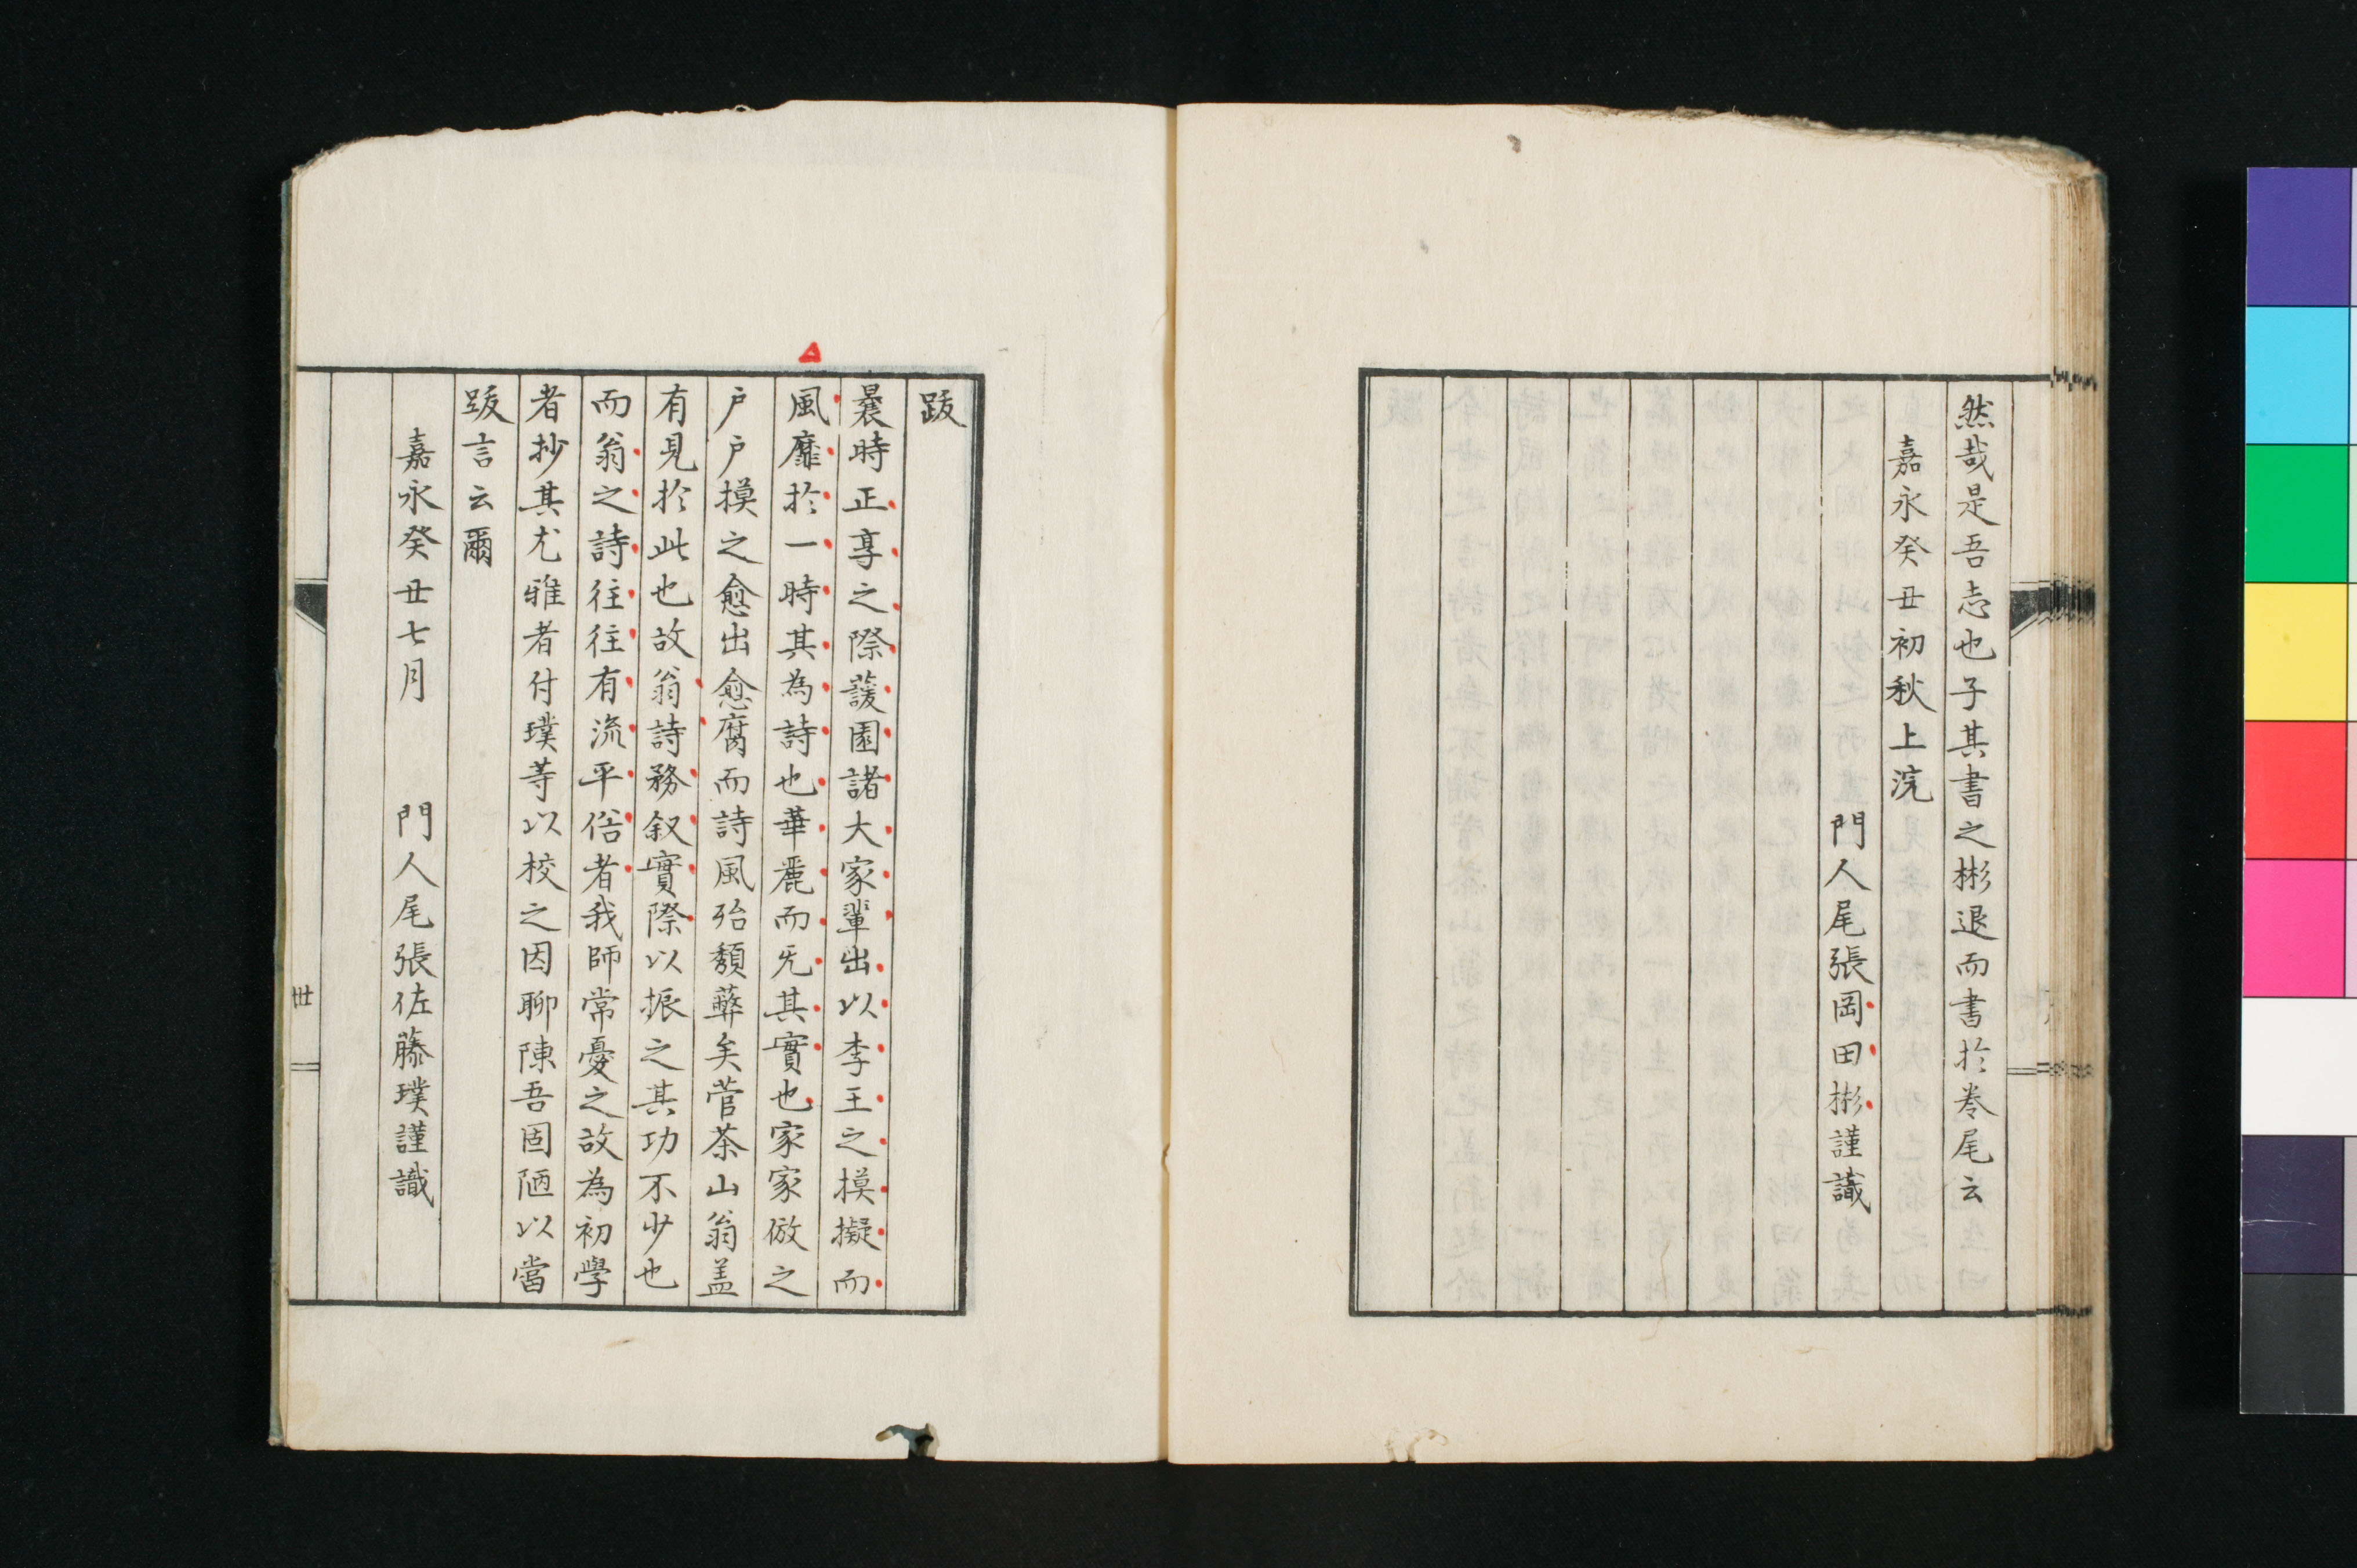 然哉是吾志也子其書之彬退而書於卷尾云
嘉永癸丑初秋上浣
門人尾張岡田彬謹識
跋
曩時正享之際蘐園諸大家輩出以李王之摸擬而
風靡於一時其為詩也華麗而旡其實也家家倣之
戶戶摸之愈出愈腐而詩風殆頽弊矣菅茶山翁盖
有見於此也故翁詩務叙實際以振之其功不少也
而翁之詩往往有流平俗者我師常憂之故為初學
者抄其尤雅者付璞等以校之因聊陳吾固陋以當
跋言云爾
嘉永癸丑七月　門人尾張佐藤璞謹識
丗